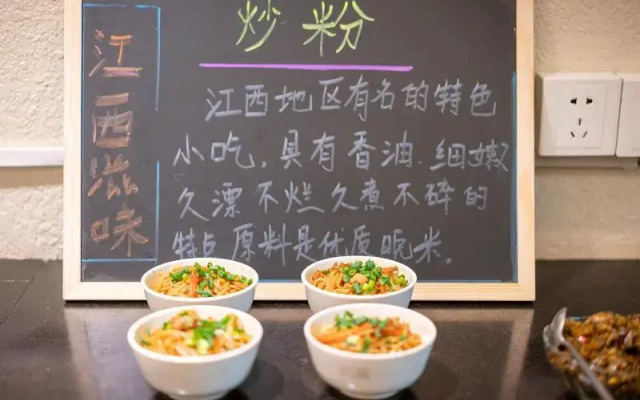 江西滋味
炒粉
江西地区有名的特色
小吃，具有香油、细嫩
久漂不烂久煮不碎的
特点原料是优质晚米。